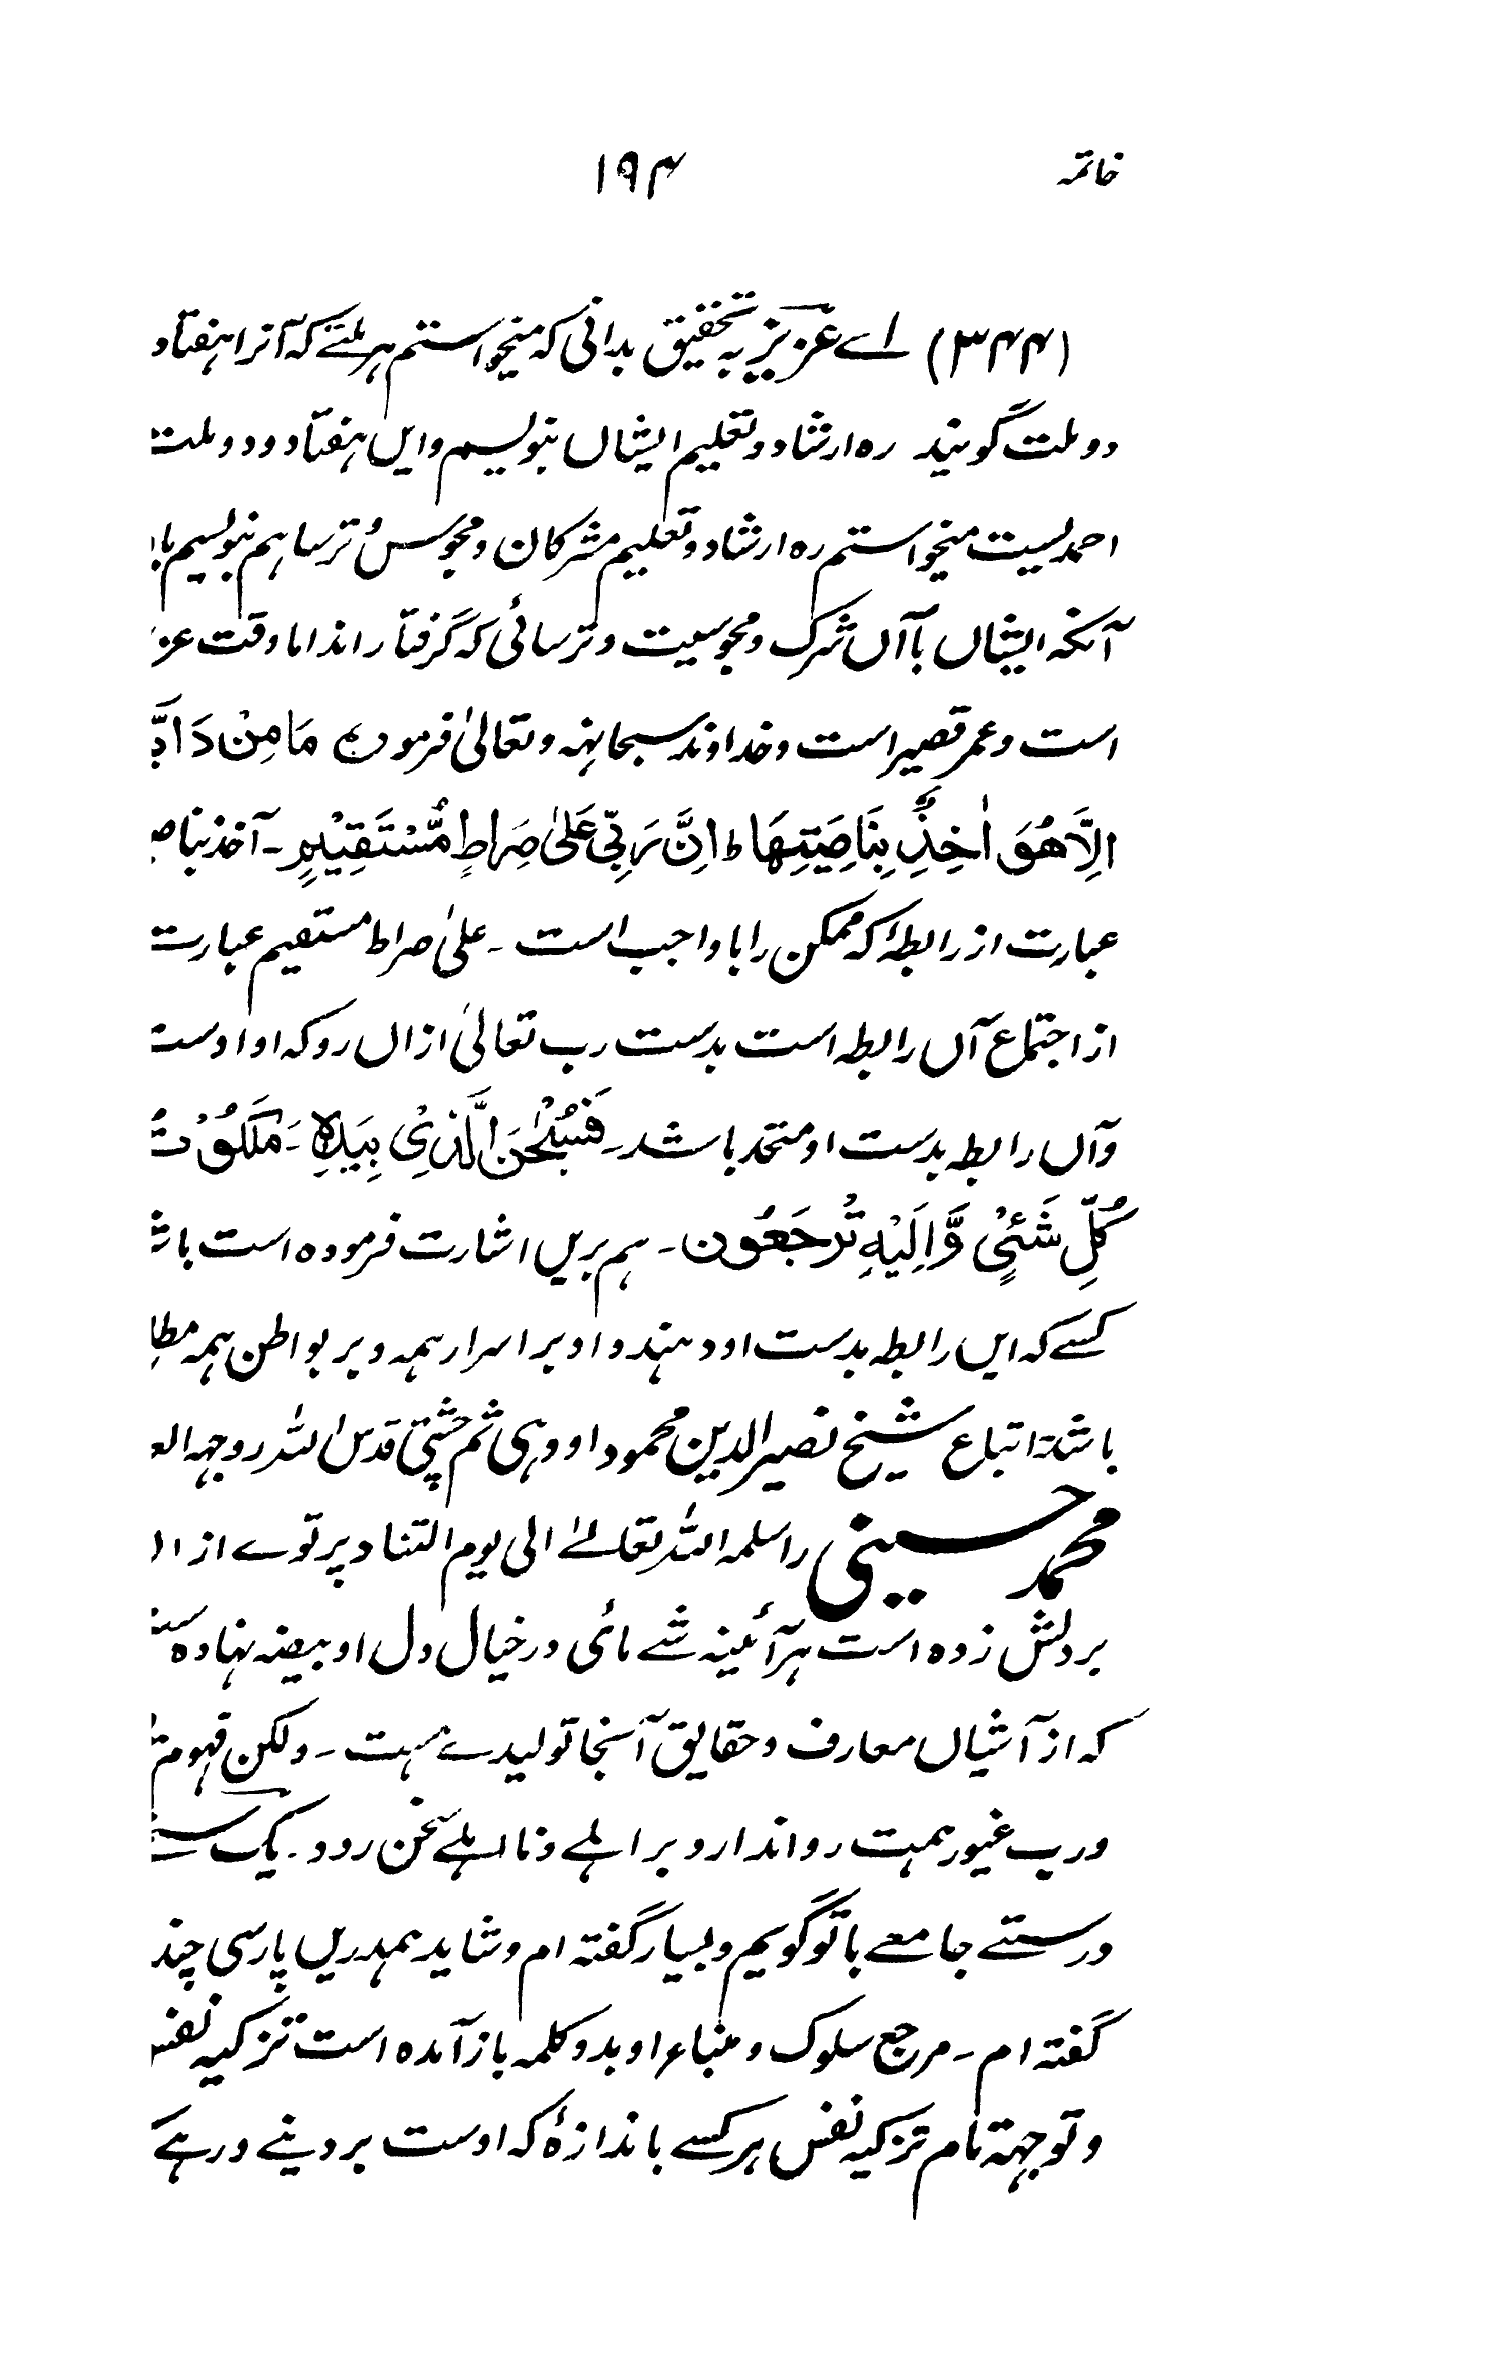 خاتمه ۱۹۴
(۳۴۴) اے عزیز به تحقیق بدانی که میخواستم هر ملتے که آنرا هفتاد
دو ملت گویند ره ارشاد و تعلیم ایشاں بنویسم وایں هفتاد و دو ملت
احمدیست میخواستم ره ارشاد و تعلیم مشرکان و مجوس و ترسا هم بنویسم با
آنکه ایشاں باآں شرک و مجوسیت و ترسائی که گرفتار اند اما وقت عزیز
است و عمر قصیر است و خداوند سبحانه و تعالیٰ فرمود مَا مِنْ دَابَّ
اِلَّا هُوَ اٰخِذٌۢ بِنَاصِیَتِهَا ط اِنَّ رَبِّیْ عَلیٰ صِرَاطٍ مُّسْتَقِیْمٍ ۔ آخذ بناص
عبارت از رابطۂ که ممکن را با واجب است ۔ علیٰ صراط مستقیم عبارت
از اجتماع آں رابطه است بدست رب تعالیٰ ازاں رو که او اوست
وآں رابطه بدست او متحد باشد ۔ فَسُبْحٰنَ الَّذِیْ بِیَدِهٖ ۔ مَلَکُوْتُ
کُلِّ شَئْیٍ وَّاِلَیْهِ تُرْجَعُون ۔ هم بریں اشارت فرموده است باش
کسے که ایں رابطه بدست او دهند و او بر اسرار همه و بر بواطن همه مطل
باشد اتباع شیخ نصیر الدین محمود اودهی ثم چشتی قدس الله روحهه الع
محمد حسینی را سلمه الله تعالےٰ الی یوم التناد پرتوے از ا
بر دلش زده است هر آئینه شے مائی در خیال دل او بیضه نهاده
که از آشیاں معارف و حقایق آنجا تولیدے هست ۔ ولکن قهوم
ورب غیور همت روا ندارد و بر اهلے و نا اهلے سخن رود ۔ یک
ورستے جامعے با تو گویم و بسیار گفته ام و شاید همدریں پارسی چند
گفته ام ۔ مرجع سلوک و مبناء او بدو کلمه باز آمده است تزکیه نفس
و توجهه تام تزکیه نفس هر کسے باندازۂ که اوست بر دینے و رهے